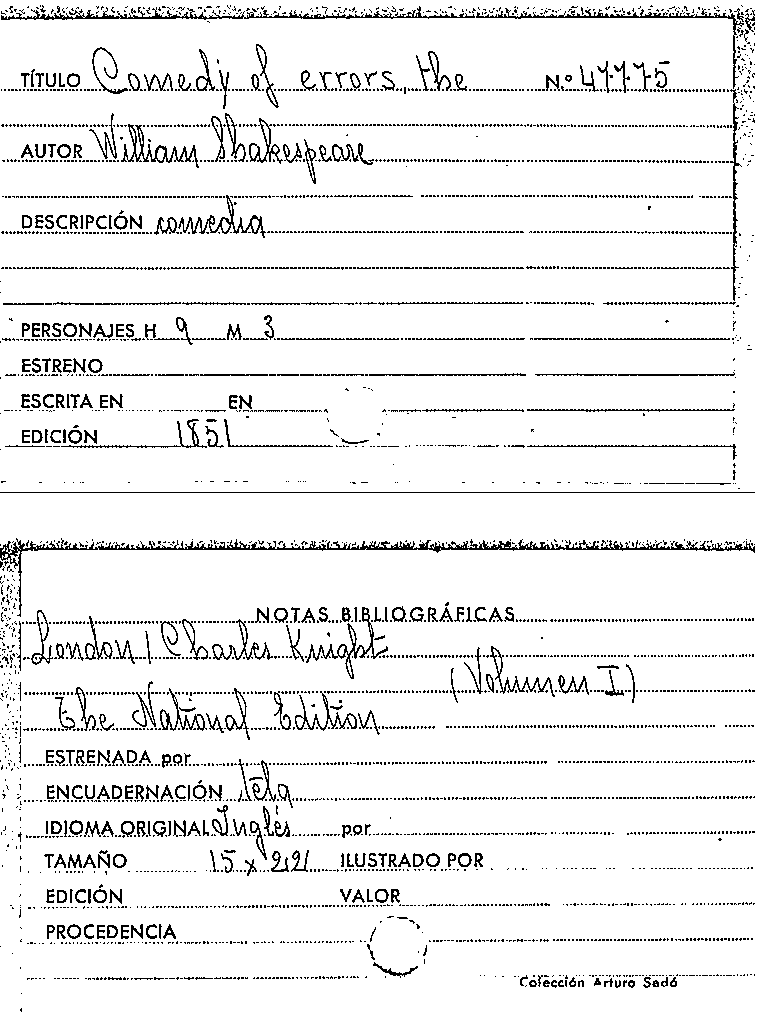 TÍTULO Comedy of errors, the N.º 47775
AUTOR William Shakespeare
DESCRIPCIÓN comedia
PERSONAJES H 9 M 3
ESTRENO
ESCRITA EN EN
EDICIÓN 1851
NOTAS BIBLIOGRÁFICAS
London / Charles Knight
(Volumen I)
The National Edition
ESTRENADA por
ENCUADERNACIÓN tela
IDIOMA ORIGINAL Inglés por
TAMAÑO 15 x 22 ILUSTRADO POR
EDICIÓN VALOR
PROCEDENCIA
Colección Arturo Sedó